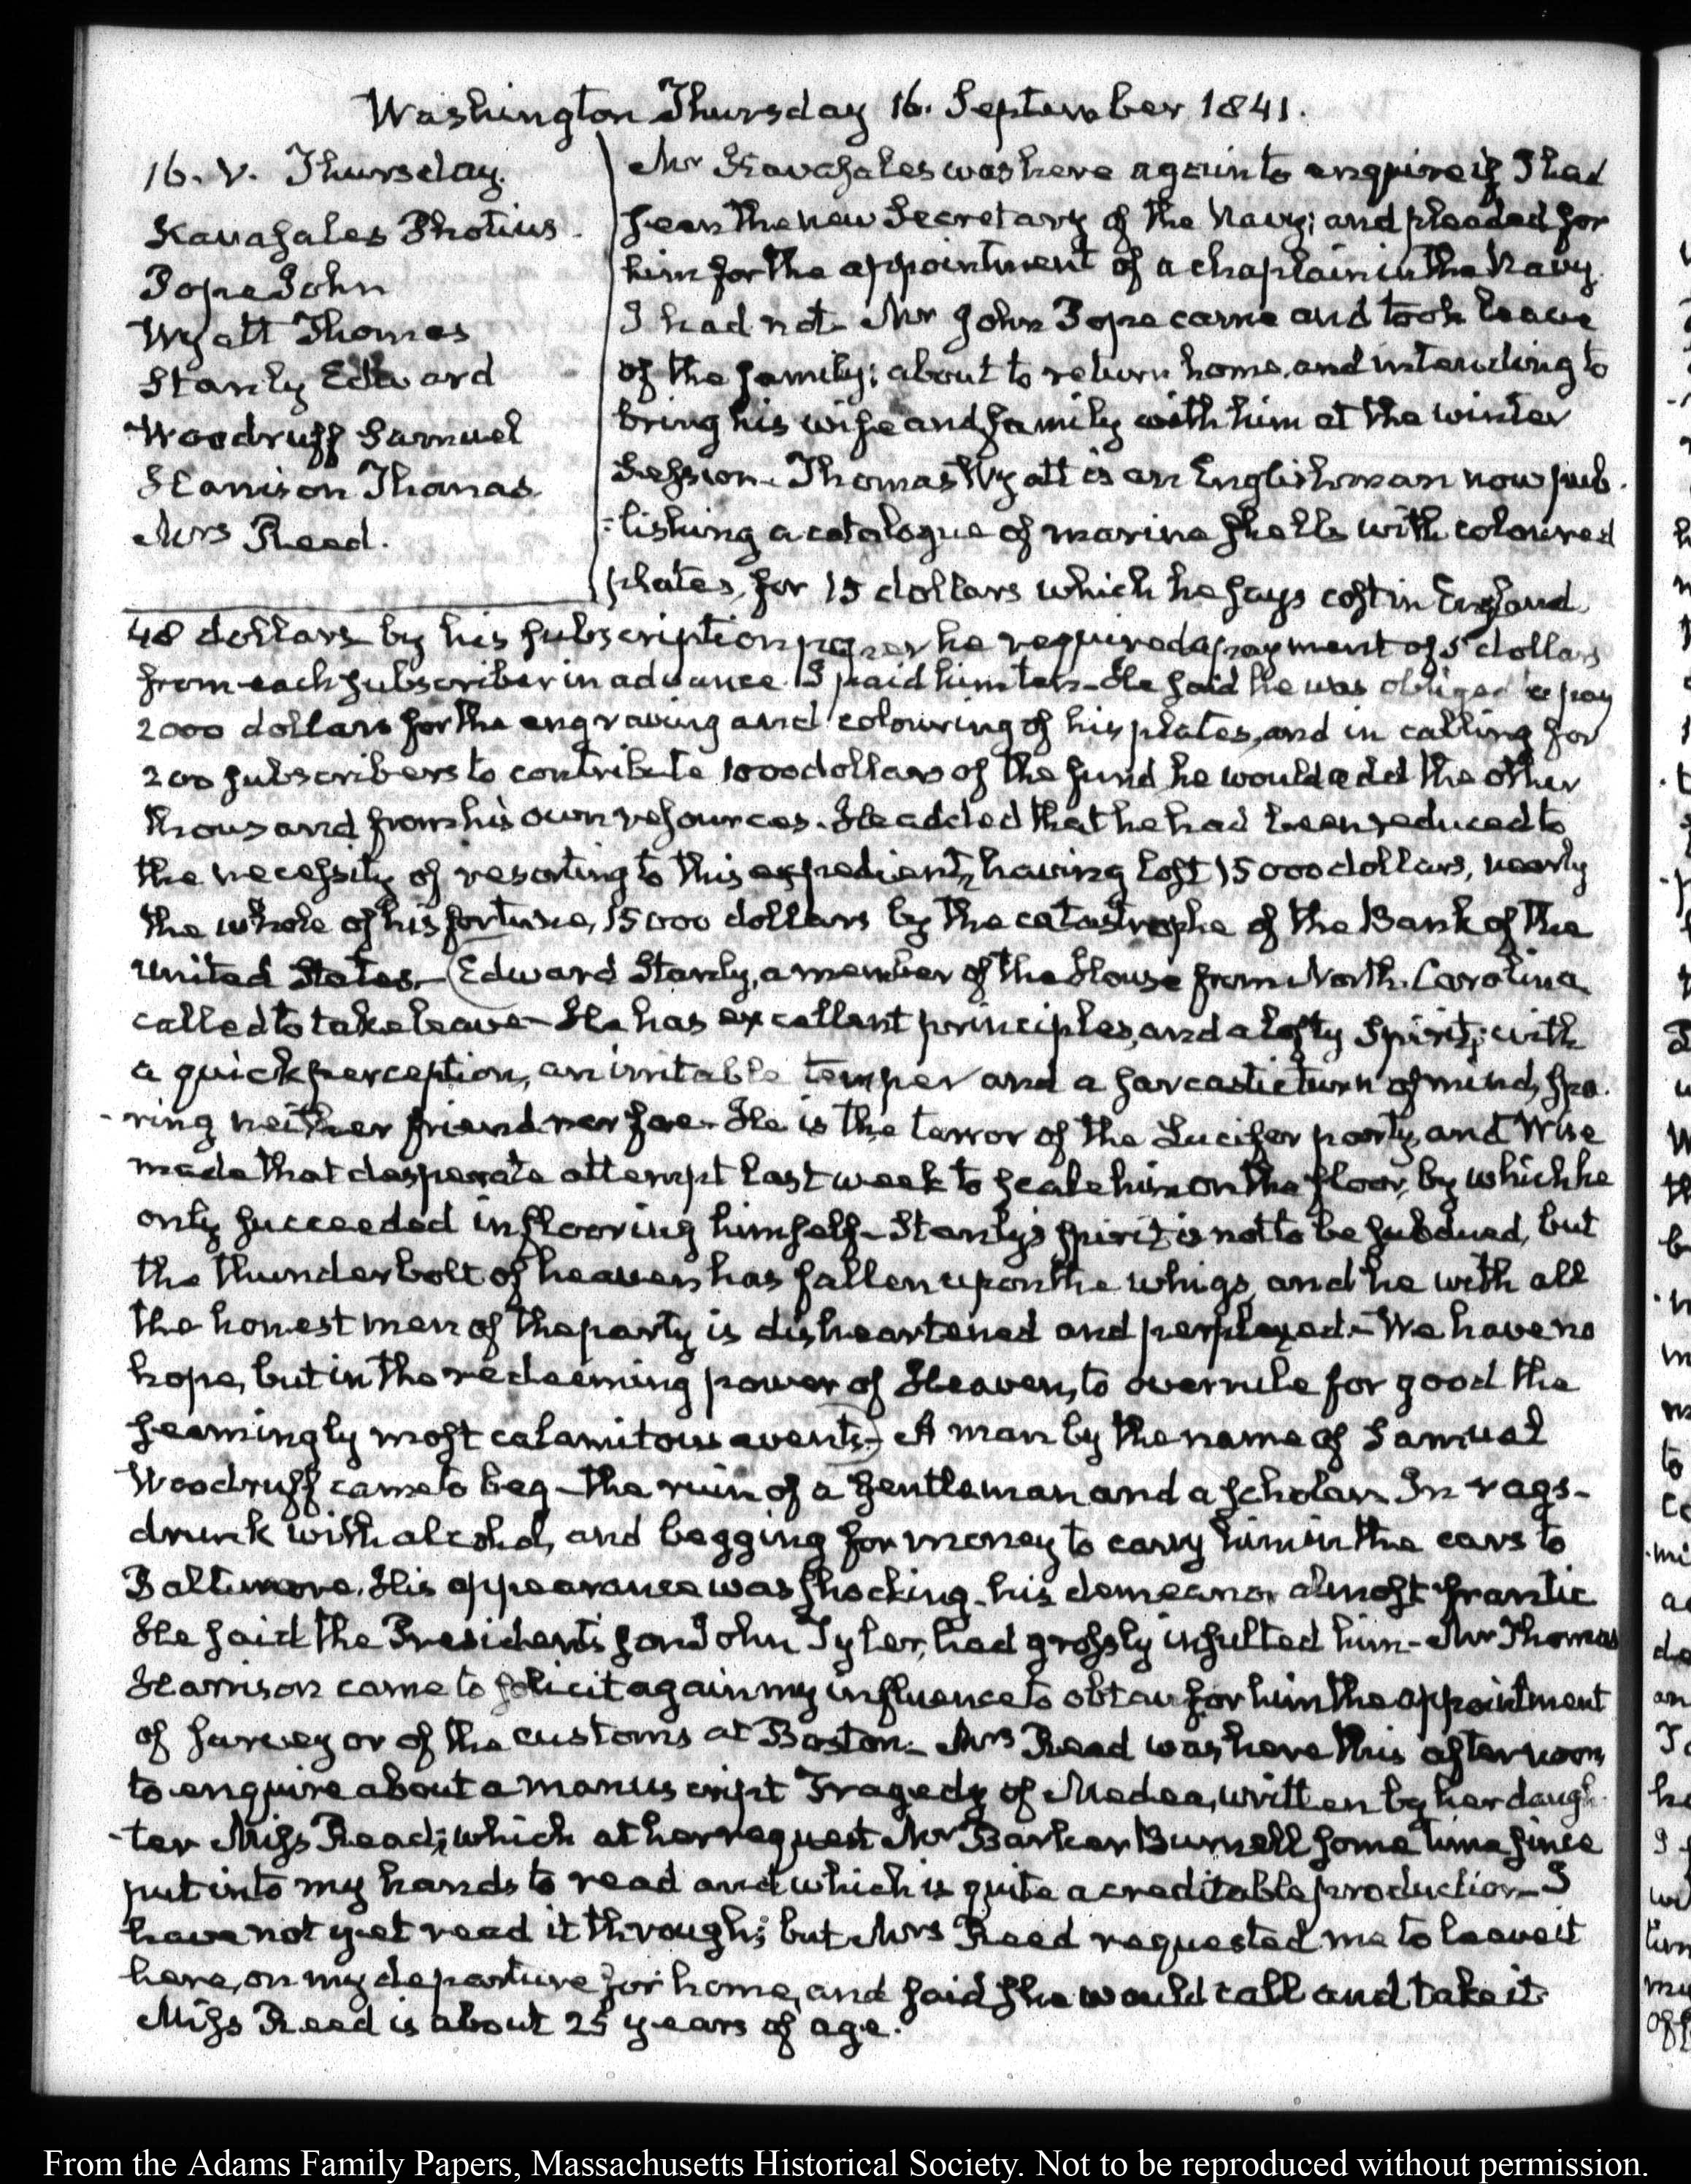 Washington Thursday 16. September 1841.
16. V. Thursday.
Kavasales Photius.
Pope John
Wyatt Thomas
Stanly Edward
Woodruff Samuel
Harrison Thomas.
Mrs Read.
Mr Kavasales was here again to enquire if I had
seen the new Secretary of the Navy; and pleaded for
him for the appointment of a chaplain in the Navy.
I had not. Mr John Pope came and took leave
of the family; about to return home, and intending to
bring his wife and family with him at the winter
Session. Thomas Wyatt is an Englishman now pub-
-lishing a catalogue of marine shells with coloured
plates, for 15 dollars which he says cost in England
48 dollars by his subscription paper he required a payment of 5 dollars
from each subscriber in advance. I paid him ten. He said he was obliged to pay
2000 dollars for the engraving and colouring of his plates, and in calling for
200 subscribers to contribute 1000 dollars of the fund he would add the other
thousand from his own resources. He added that he had been reduced to
the necessity of resorting to this expedient, having lost 15000 dollars, nearly
the whole of his fortune, 15000 dollars by the catastrophe of the Bank of the
United States. (Edward Stanly, a member of the House from North-Carolina
called to take leave. He has excellent principles, and a lofty Spirit; with
a quick perception, an irritable temper and a sarcastic turn of mind, spa-
-ring neither friend nor foe. He is the terror of the Lucifer party, and Wise
made that desperate attempt last week to scale him on the floor, by which he
only succeeded in flooring himself. Stanly's spirit is not to be subdued, but
the thunderbolt of heaven has fallen upon the whigs, and he with all
the honest men of the party is disheartened and perplexed. We have no
hope, but in the redeeming power of Heaven, to overrule for good the
seemingly most calamitous events.) A man by the name of Samuel
Woodruff came to beg - the ruin of a gentleman and a scholar. In rags -
drunk with alcohol, and begging for money to carry him in the cars to
Baltimore. His appearance was shocking - his demeanor almost frantic
He said the President's son John Tyler, had grossly insulted him - Mr Thomas
Harrison came to solicit again my influence to obtain for him the appointment
of surveyor of the customs at Boston. Mrs Read was here this afternoon,
to enquire about a manuscript Tragedy of Medea, written by her daugh-
-ter Miss Read; which at her request Mr Barker Burnell some time since
put into my hands to read and which is quite a creditable production. I
have not yet read it through; but Mrs Read requested me to leave it
here, on my departure for home, and said she would call and take it.
Miss Read is about 25 years of age.
From the Adams Family Papers, Massachusetts Historical Society. Not to be reproduced without permission.